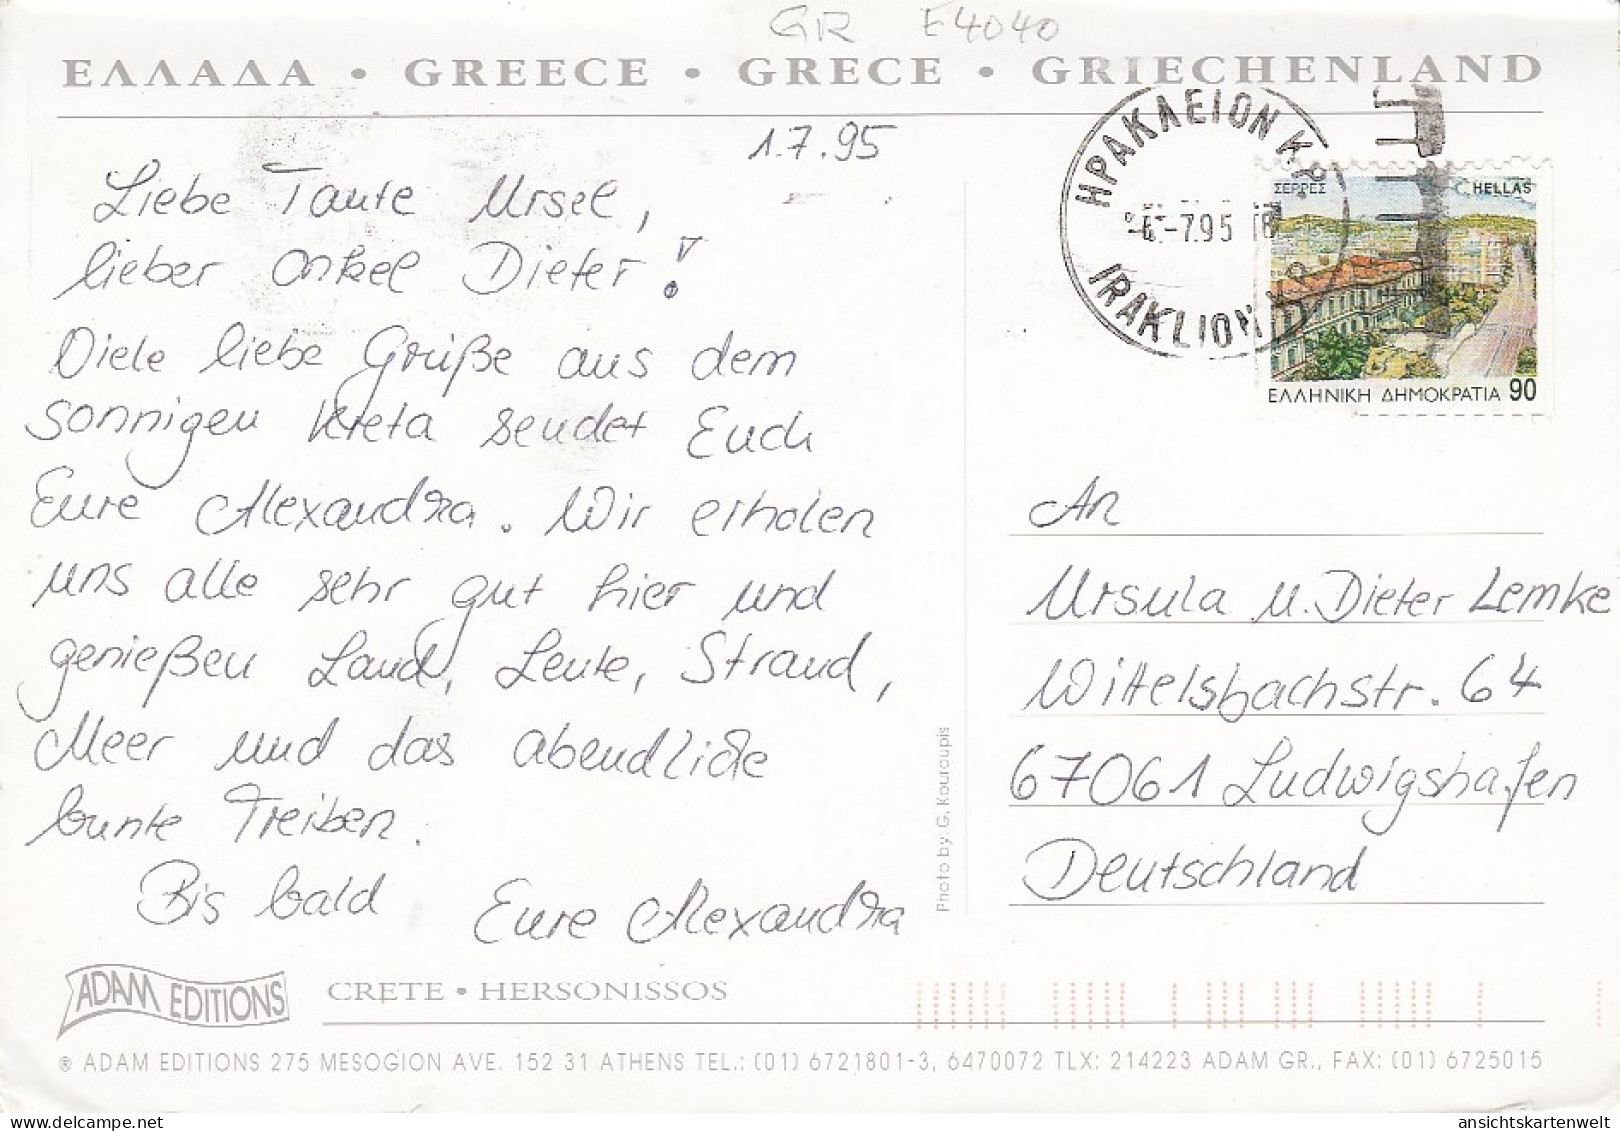 GR E4040
ΕΛΛΑΔΑ • GREECE • GRECE • GRIECHENLAND
1.7.95
Liebe Tante Ursel,
lieber Onkel Dieter!
Viele liebe Grüße aus dem
sonnigen Kreta sendet Euch
Eure Alexandra. Wir erholen
uns alle sehr gut hier und
genießen Land, Leute, Strand,
Meer und das abendliche
bunte Treiben.
Bis bald Eure Alexandra
Photo by. G. Kouroupis
ΗΡΑΚΛΕΙΟΝ ΚΡ.
-7.95
IRAKLION
ΣΕΡΡΕΣ HELLAS
ΕΛΛΗΝΙΚΗ ΔΗΜΟΚΡΑΤΙΑ 90
An
Ursula u. Dieter Lemke
Wittelsbachstr. 64
67061 Ludwigshafen
Deutschland
ADAM EDITIONS
CRETE • HERSONISSOS
® ADAM EDITIONS 275 MESOGION AVE. 152 31 ATHENS TEL.: (01) 6721801-3, 6470072 TLX: 214223 ADAM GR., FAX: (01) 6725015
ansichtskartenwelt